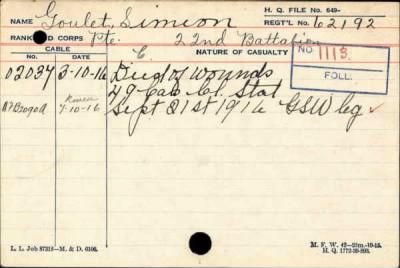 H. Q. FILE No. 649-
NAME Goulet, Simeon REGT'L No. 62192
RANK AND CORPS Pte. 22nd Battalion
CABLE NATURE OF CASUALTY NO. 1113.
No. DATE FOLL.
02037 3-10-16 Died of wounds
49 Cas. Cl. Stat
7-10-16 Sept 21st 1916 GSW leg
L. L. Job 87313—M. & D. 6106.
M. F. W. 42